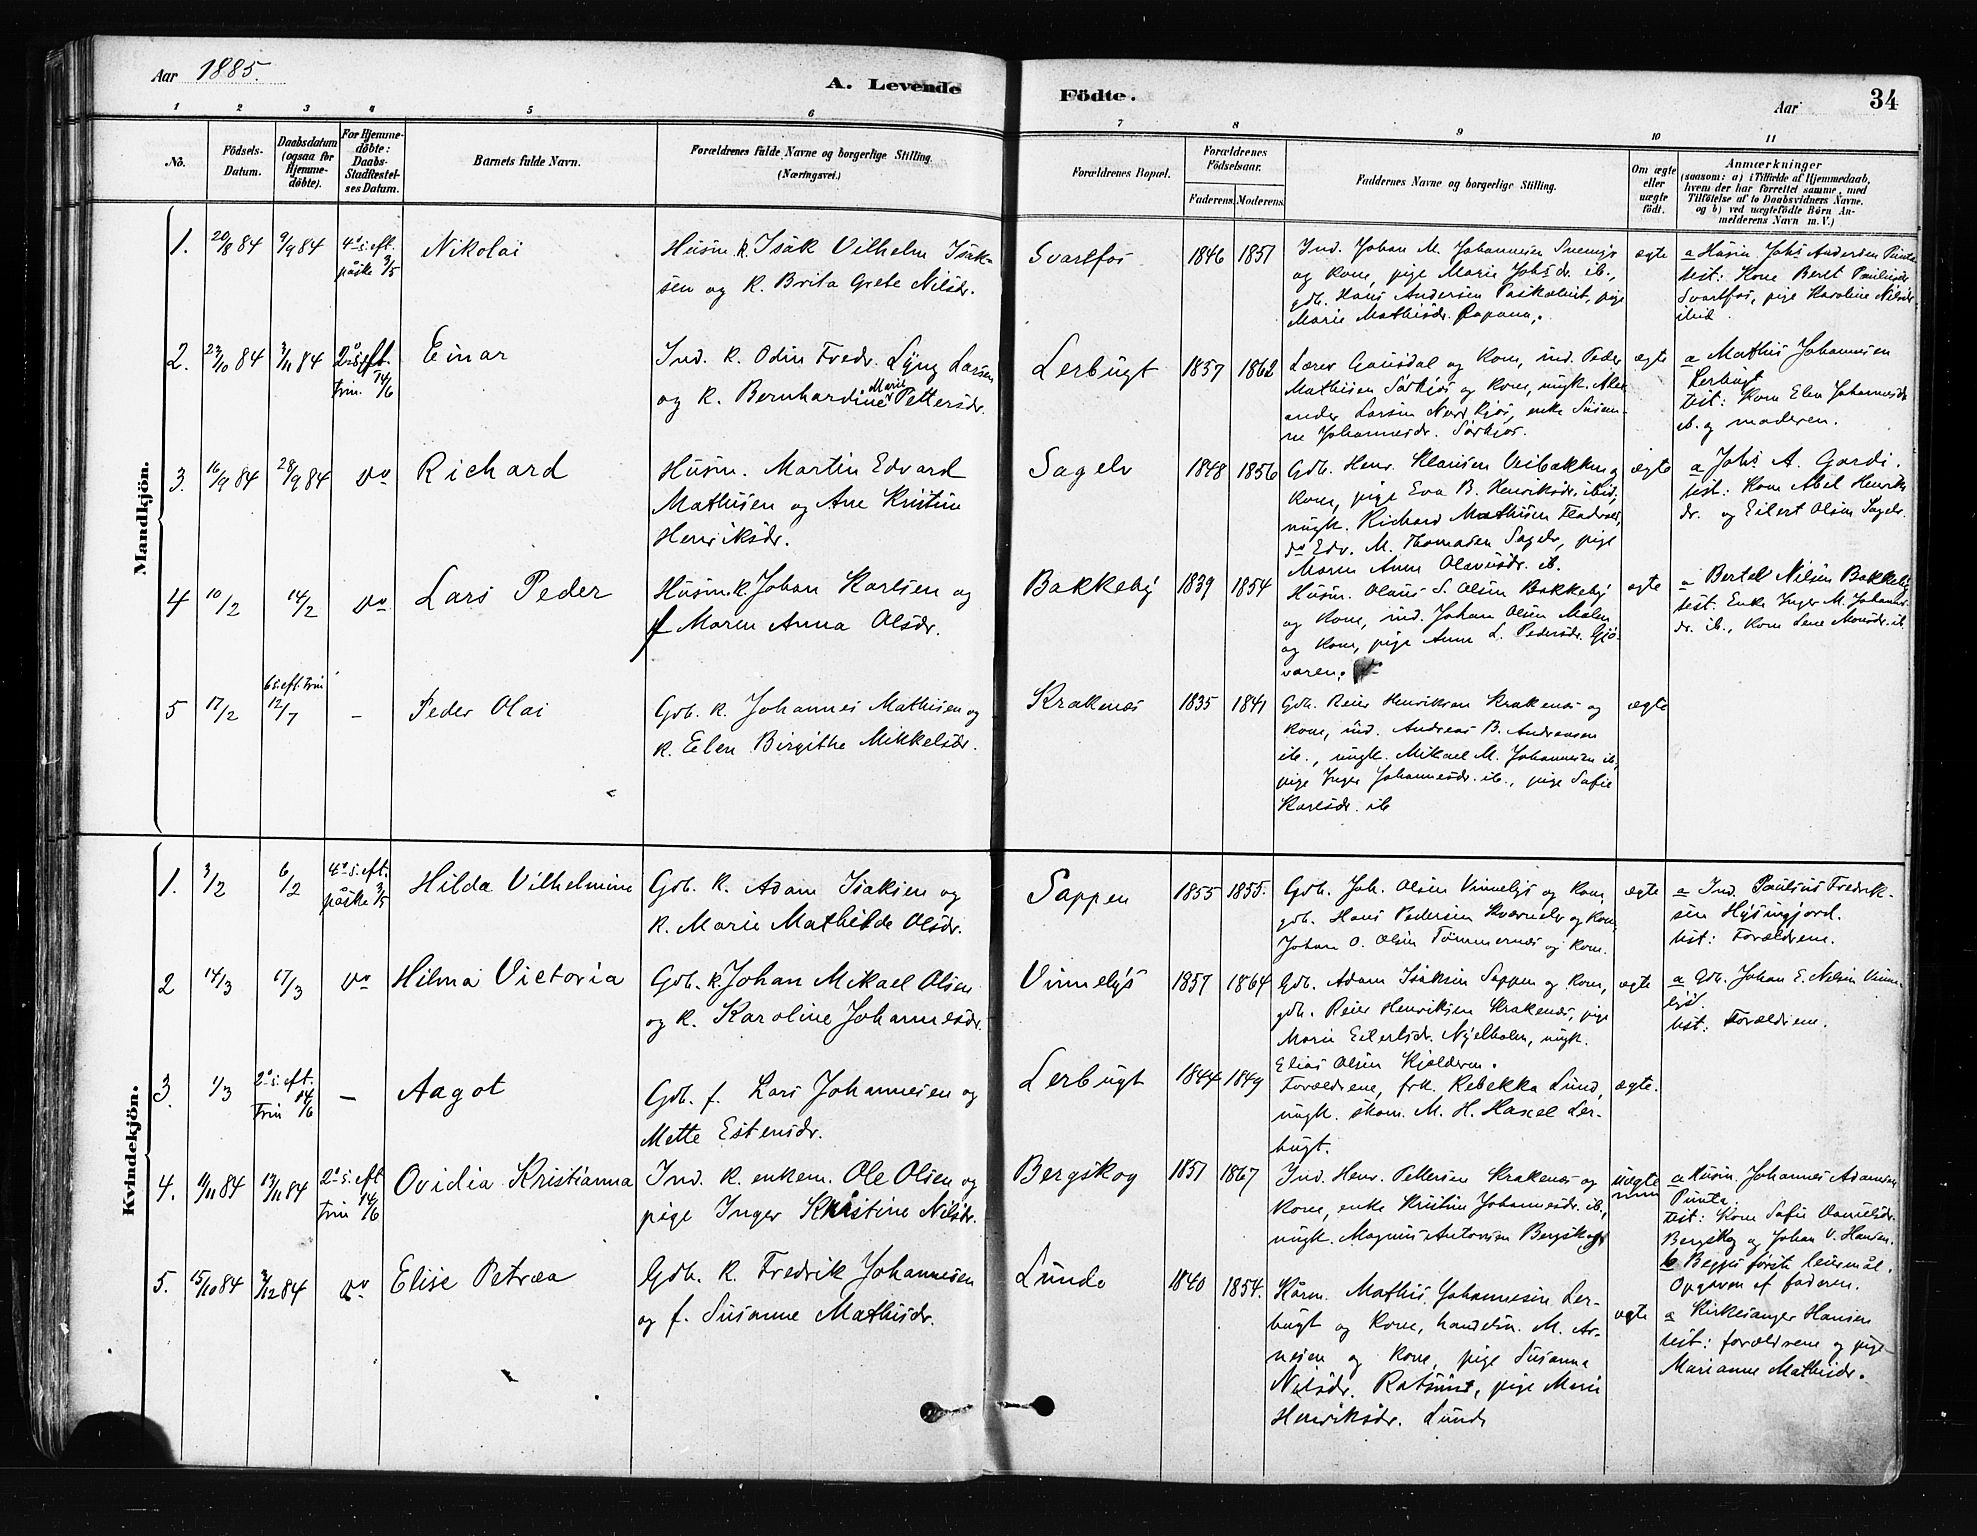 Aar 1885.
A. Levende Födte.
Aar
34
1 2 3 4 5 6 7 8 9 10 11
No.
Födsels-Datum.
Daabsdatum (ogsaa for Hjemme-döbte).
For Hjemme-döbte: Daabs-Stadfæstel-ses Datum.
Barnets fulde Navn.
Forældrenes fulde Navne og borgerlige Stilling. (Næringsvei.)
Forældrenes Bopæl.
Forældrenes Födselsaar.
Faderens. Moderens.
Faddernes Navne og borgerlige Stilling.
Om ægte eller uægte födt.
Anmærkninger
(saasom: a) i Tilfælde af Hjemmedaab,
hvem der har forrettet samme, med
Tilföielse af to Daabsvidners Navne.
og b) ved uægtefödte Börn An-
melderens Navn m. V.)
Mandkjön.
1. 20/8 84 9/9 84 4de s. eft. påske 3/5
Nikolai
Husm. k. Isak Vilhelm Isak-
sen og k. Brita Grete Nilsdr.
Svartfos 1846 1851
Ind. Johan M. Johannesen
og kone, pige Marie Johs dr. ib.,
gdb. Hans Andersen pige
Marie Mathisdr.
ægte
a Husm Johs Andersen Punta
test: Kone Beret
Svartfos, pige Karoline Nilsdr.
ibid
2. 23/10 84 3/11 84 2den s. eft. trin. 14/6
Einar
Ind. k. Odin Fredr. Lyng Larsen
og k. Bernhardine Marie Pettersdr.
Lerbugt 1857 1862
Lærer Gausdal og kone, ind. Peder
Mathisen Sörkjos og kone, ungk. Alex-
ander Larsen Nord kjos, enke Susan-
ne Johannesdr. Sörkjos.
ægte
a Mathis Johannesen
Lerbugt
test: Kone Elen Johannesdr.
ib. og moderen.
3. 16/9 84 28/9 84 do
Richard
Husm. Martin Edvard
Mathisen og Ane Kristine
Henriksdr.
Sagelv 1848 1856
Gdb. Henr. Klausen Veibakken og
kone, pige Eva B. Henriksdr. ibid,
ungk. Richard Mathisen
do Edv. M. Thomasen Sagelv, pige
Maren Anne Olavusdr. ib.
ægte
a Johs A. Gardi.
test: Kone Abel Henriks
dr. og Eilert Olsen Sagelv.
4 10/2 14/2 do
Lars Peder
Husm. k. Johan Karlsen og
f Maren Anna Olsdr.
Bakkeby 1839 1854
Husm. Olaus S. Olsen Bakkeby
og kone, ind. Johan Olsen Molen
og kone, pige Anne L. Pedersdr. Gjö-
varen.
ægte
a Bertel Nilsen Bakkeby
test: Enke Inger M. Johannes-
dr. ib., kone Lene Monsdr. ib.
5 17/2 6 s. eft. trin 12/7 -
Peder Olai
Gdb. k. Johannes Mathisen og
k. Elen Birgithe Mikkelsdr.
Krakenes 1835 1841
Gdb. Reier Henriksen Krakenes og
kone, ind. Andreas B. Andreasen
ib., ungk. Mikael M. Johannesen ib,
pige Inger Johannesdr. ib., pige Safie
Karlsdr. ib
ægte
Kvindekjön.
1. 3/2 6/2 4de s. eft. påske 3/5
Hilda Vilhelmine
Gdb. k. Adam Isaksen og
k. Marie Mathilde Olsdr.
Sappen 1855 1855.
Gdb. Joh. Olsen Vinnelys og kone,
gdb. Hans Pedersen Kværnelv og kone,
Johan O. Olsen Tömmernes og kone.
ægte
a Ind. Paulsius Fredrik-
sen Hysingjord.
test: Forældrene.
2 14/3 17/3 do
Hilma Victoria
Gdb. k. Johan Mikael Olsen
og k. Karoline Johannesdr.
Vinnelys 1857 1864
Gdb. Adam Isaksen Sappen og kone,
gdb. Reier Henriksen Krakenes, pige
Marie Eilertsdr. Njelholm, ungk.
Elias Olsen Kjelderen.
ægte
a Gdb. Johan E. Nilsen Vinne-
lys.
test: Forældrene.
3. 1/3 2den s. eft. Trin 14/6 -
Aagot
Gdb. f. Lars Johannesen og
Mette Estensdr.
Lerbugt 1844 1849
Forældrene, frk. Rebekka Lund,
ungk. skom. M. H. Hasel Ler-
bugt.
ægte.
4. 11/11 84 13/11 84 2den s. eft trin 14/6
Ovidia Kristianna
Ind. k. enkem. Ole Olsen og
pige Inger Kristine Nilsdr.
Bergskog 1851 1867
Ind. Henr. Pettersen Krakenes og
kone, enke Kristin Johannesdr. ib.,
ungk. Magnus Antonsen Bergskog
uægte
a Husm. Johannes Adamsen
Punta.
test: Kone Safie Danielsdr.
Bergskog og Johan V. Hansen.
b Begges förste leiermål.
Opgaven af faderen.
5. 15/10 84 3/12 84 do
Elise Petræa
Gdb. k. Fredrik Johannesen
og f. Susanne Mathisdr.
Lunde 1840 1854.
Kårm. Mathis Johannesen Ler-
bugt og kone, handelsm. M. Ar-
nesen og kone, pige Susanna
Nilsdr. Rotsund, pige Marie
Henriksdr. Lunde
ægte
a Kirkesanger Hansen
test: forældrene og pige
Marianne Mathisdr.